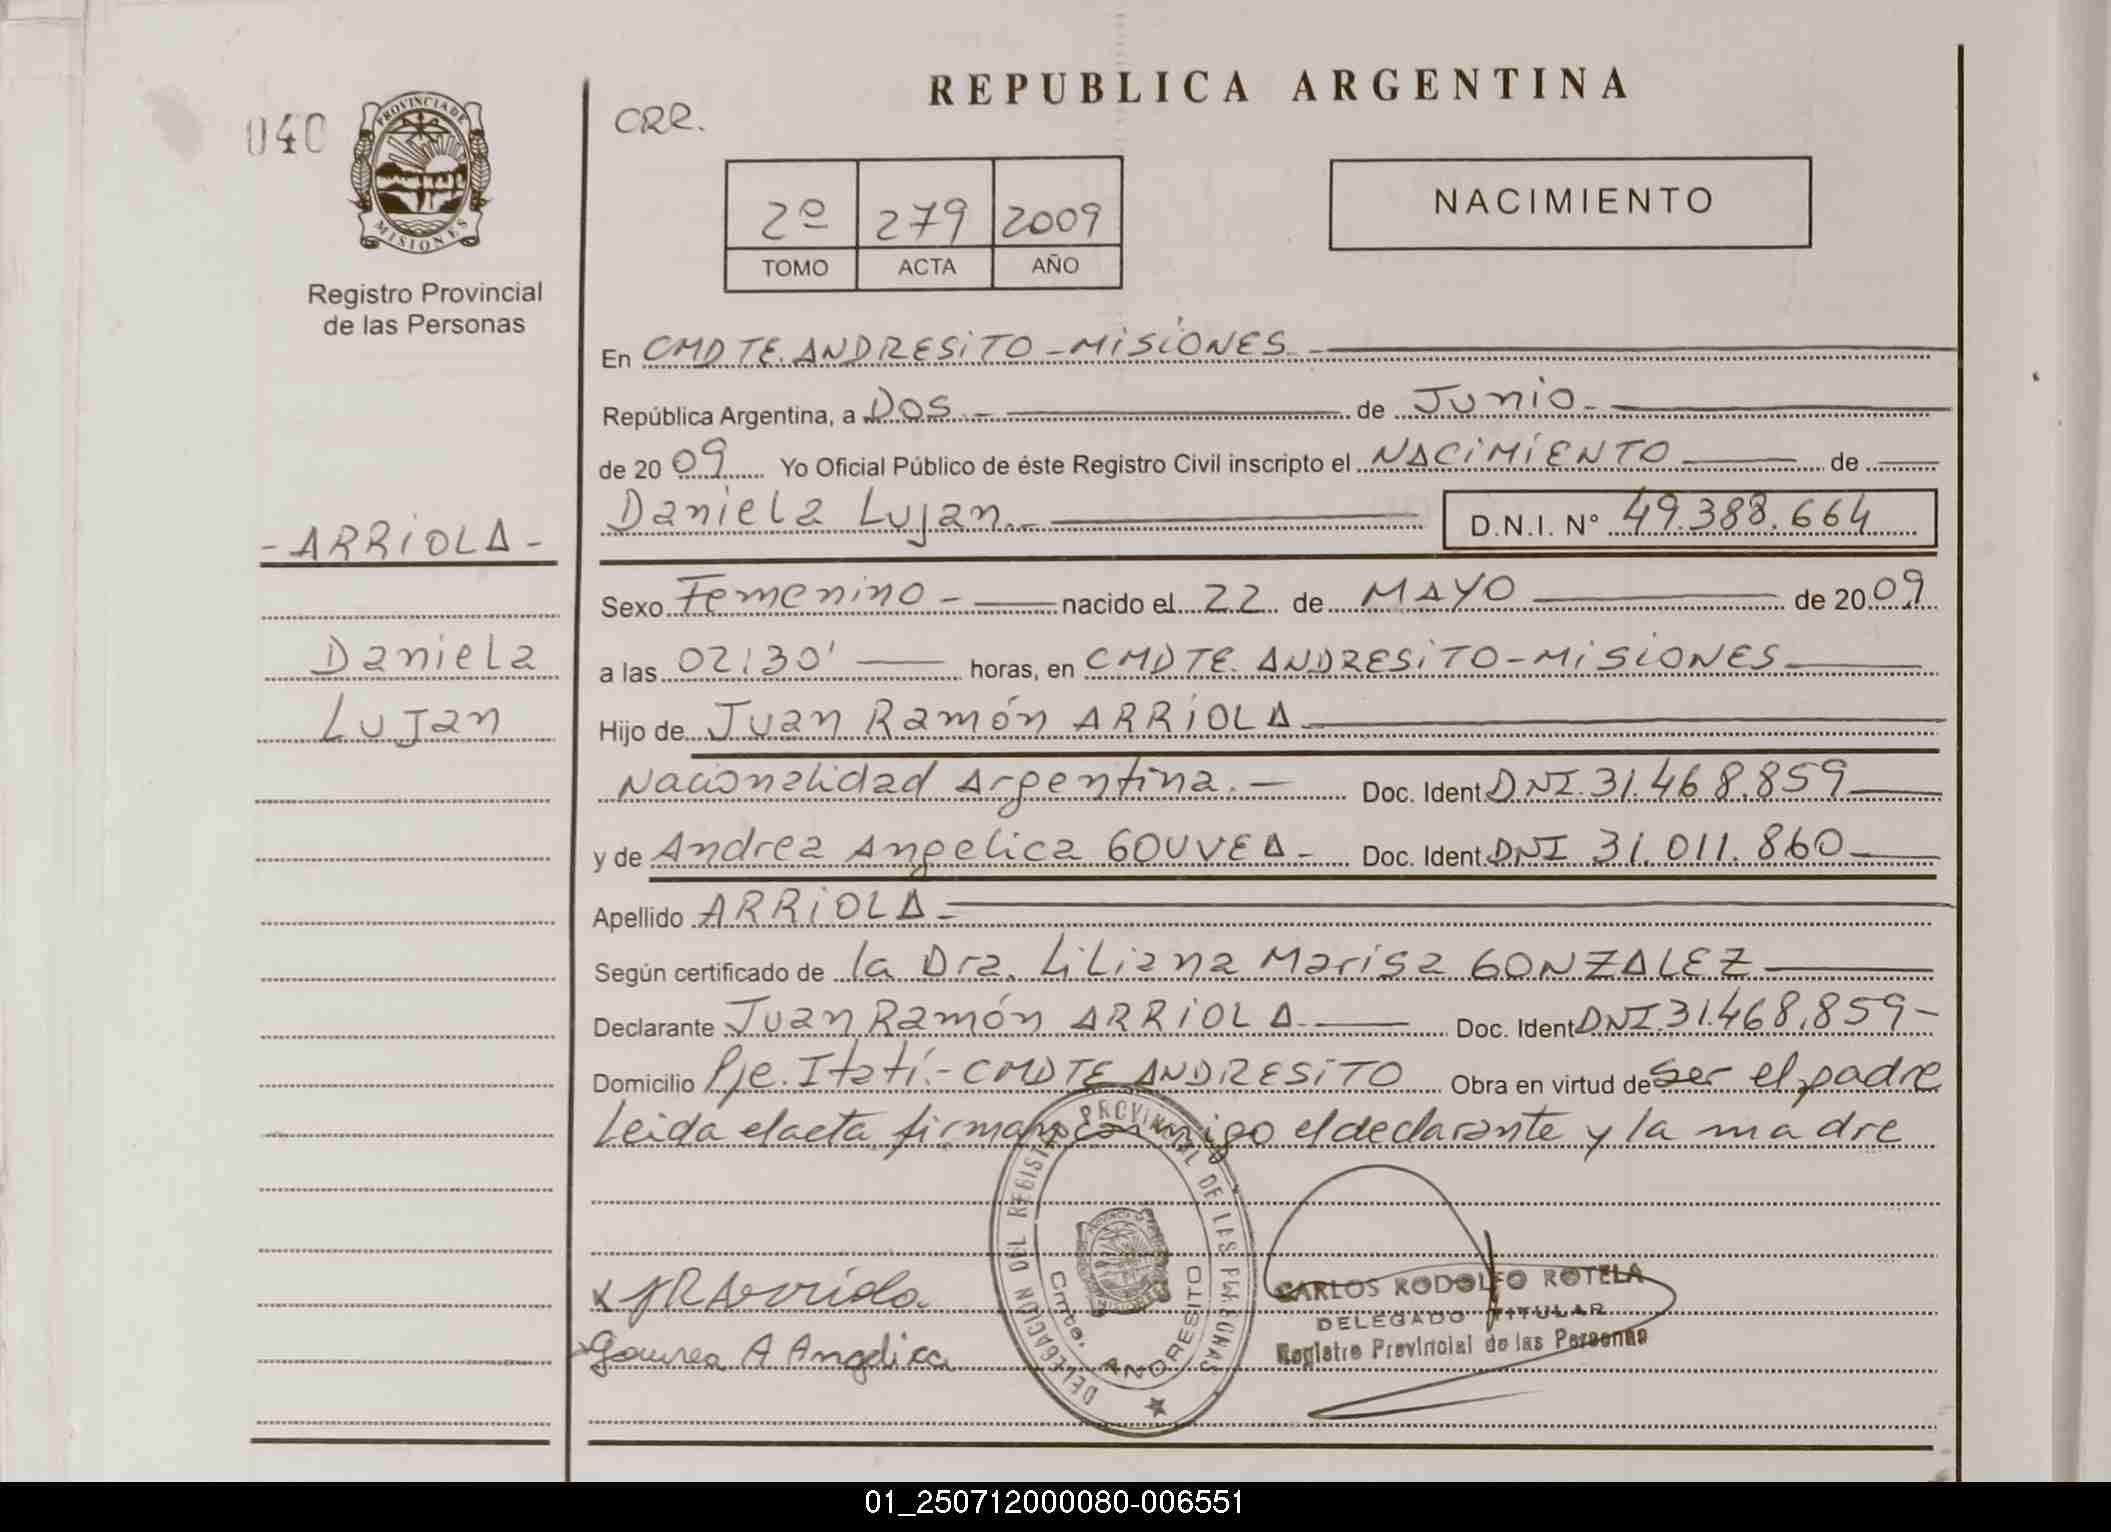 REPUBLICA ARGENTINA
040
PROVINCIA DE
MISIONES
Registro Provincial
de las Personas
CRR.
2º 279 2009
TOMO ACTA AÑO
NACIMIENTO
En CMDTE. ANDRESiTO - MiSiONES -
República Argentina, a Dos - de Junio -
de 2009 Yo Oficial Público de éste Registro Civil inscripto el NACiMiENTO de
Daniela Lujan. - D.N.I. Nº 49.388.664
- ARRiOLA -
Daniela
Lujan
Sexo Femenino - nacido el 22 de MAYO de 2009
a las 02:30' horas, en CMDTE. ANDRESiTO - MiSiONES
Hijo de Juan Ramón ARRiOLA
Nacionalidad Argentina. - Doc. Ident. DNI. 31.468.859
y de Andrea Angelica GOUVEA - Doc. Ident. DNI 31.011.860
Apellido ARRiOLA -
Según certificado de la Dra. Liliana Marisa GONZALEZ
Declarante Juan Ramón ARRiOLA Doc. Ident. DNI. 31.468.859 -
Domicilio Pje. Itatí. - CMDTE ANDRESiTO Obra en virtud de ser el padre
Leida el acta firman conmigo el declarante y la madre
DELEGACION DEL REGISTRO PROVINCIAL DE LAS PERSONAS
Cmte. ANDRESITO
x JR Arriola
Gouvea A Angelica
CARLOS RODOLFO ROTELA
DELEGADO TITULAR
Registro Provincial de las Personas
01_250712000080-006551